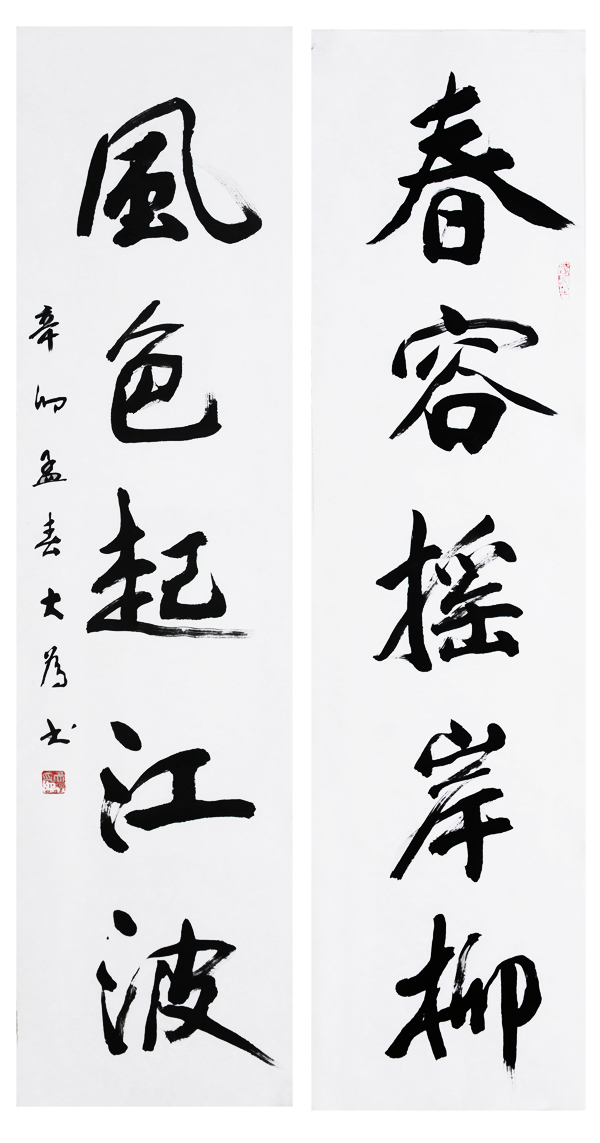 春容摇岸柳
風色起江波
辛卯孟春大为书